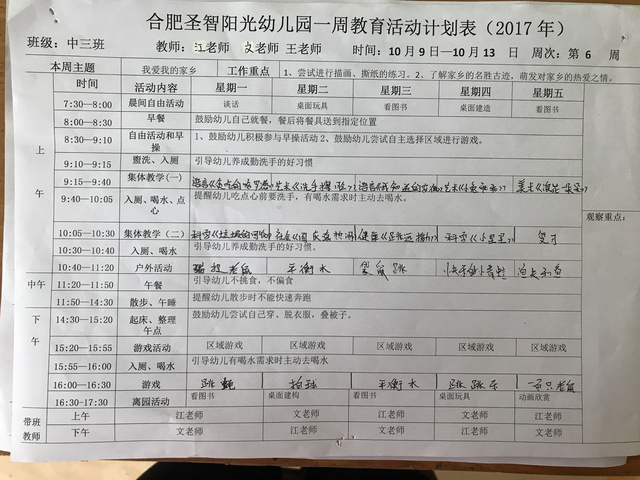 合肥圣智阳光幼儿园一周教育活动计划表（2017 年）
班级：中三班 教师：江老师 文老师 王老师 时间：10 月 9 日—10 月 13 日 周次：第 6 周
本周主题 我爱我的家乡 工作重点 1、尝试进行描画、撕纸的练习。2、了解家乡的名胜古迹，萌发对家乡的热爱之情。
时间 活动内容 星期一 星期二 星期三 星期四 星期五
上午
7:30—8:00 晨间自由活动 谈话 桌面玩具 看图书 桌面建造 看图书
8:00—8:30 早餐 鼓励幼儿自己就餐，餐后将餐具送到指定位置
8:30—9:10 自由活动和早操 1、鼓励幼儿积极参与早操活动 2、鼓励幼儿尝试自主选择区域进行游戏。
9:10—9:15 盥洗、入厕 引导幼儿养成勤洗手的好习惯
9:15—9:40 集体教学(一)
9:40—10:05 入厕、喝水、点心 提醒幼儿吃点心前要洗手，有喝水需求时主动去喝水。
观察重点：
10:05—10:30 集体教学（二）
10:30—10:40 入厕、喝水 引导幼儿养成勤洗手的好习惯。
10:40—11:20 户外活动 老鼠 平衡木
中午
11:20—11:50 午餐 引导幼儿不挑食，不偏食
11:50—14:30 散步、午睡 提醒幼儿散步时不能快速奔跑
下午
14:30—15:20 起床、整理午点 鼓励幼儿尝试自己穿、脱衣服，叠被子。
15:20—15:55 游戏活动 区域游戏 区域游戏 区域游戏 区域游戏 区域游戏
15:55—16:00 入厕、喝水 引导幼儿有喝水需求时主动去喝水
16:00—16:30 游戏 跳绳 拍球 平衡木
16:30-17:30 离园活动 看图书 桌面建构 看图书 桌面玩具 动画欣赏
带班教师 上午 江老师 文老师 江老师 文老师 江老师
下午 文老师 江老师 文老师 江老师 文老师